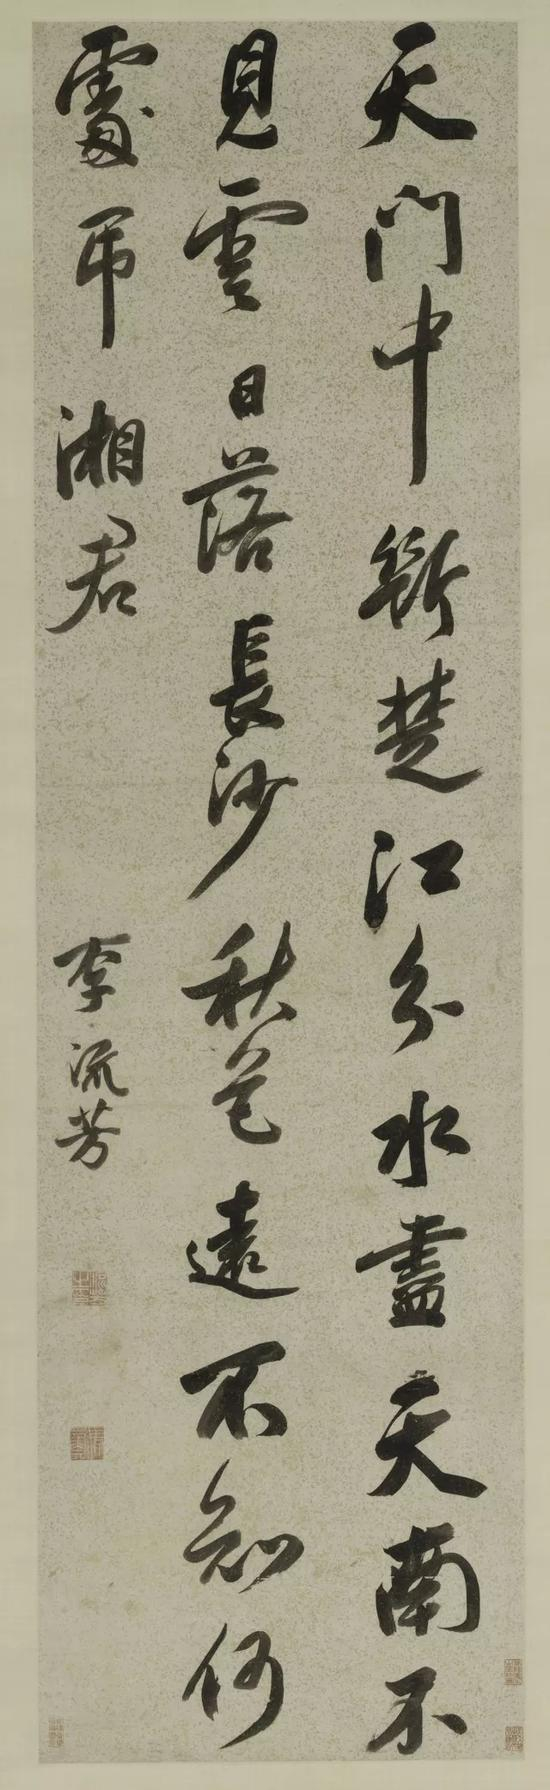 天門中斷楚江分水盡天南不
見雲日落長沙秋色遠不知何
處吊湘君 李流芳